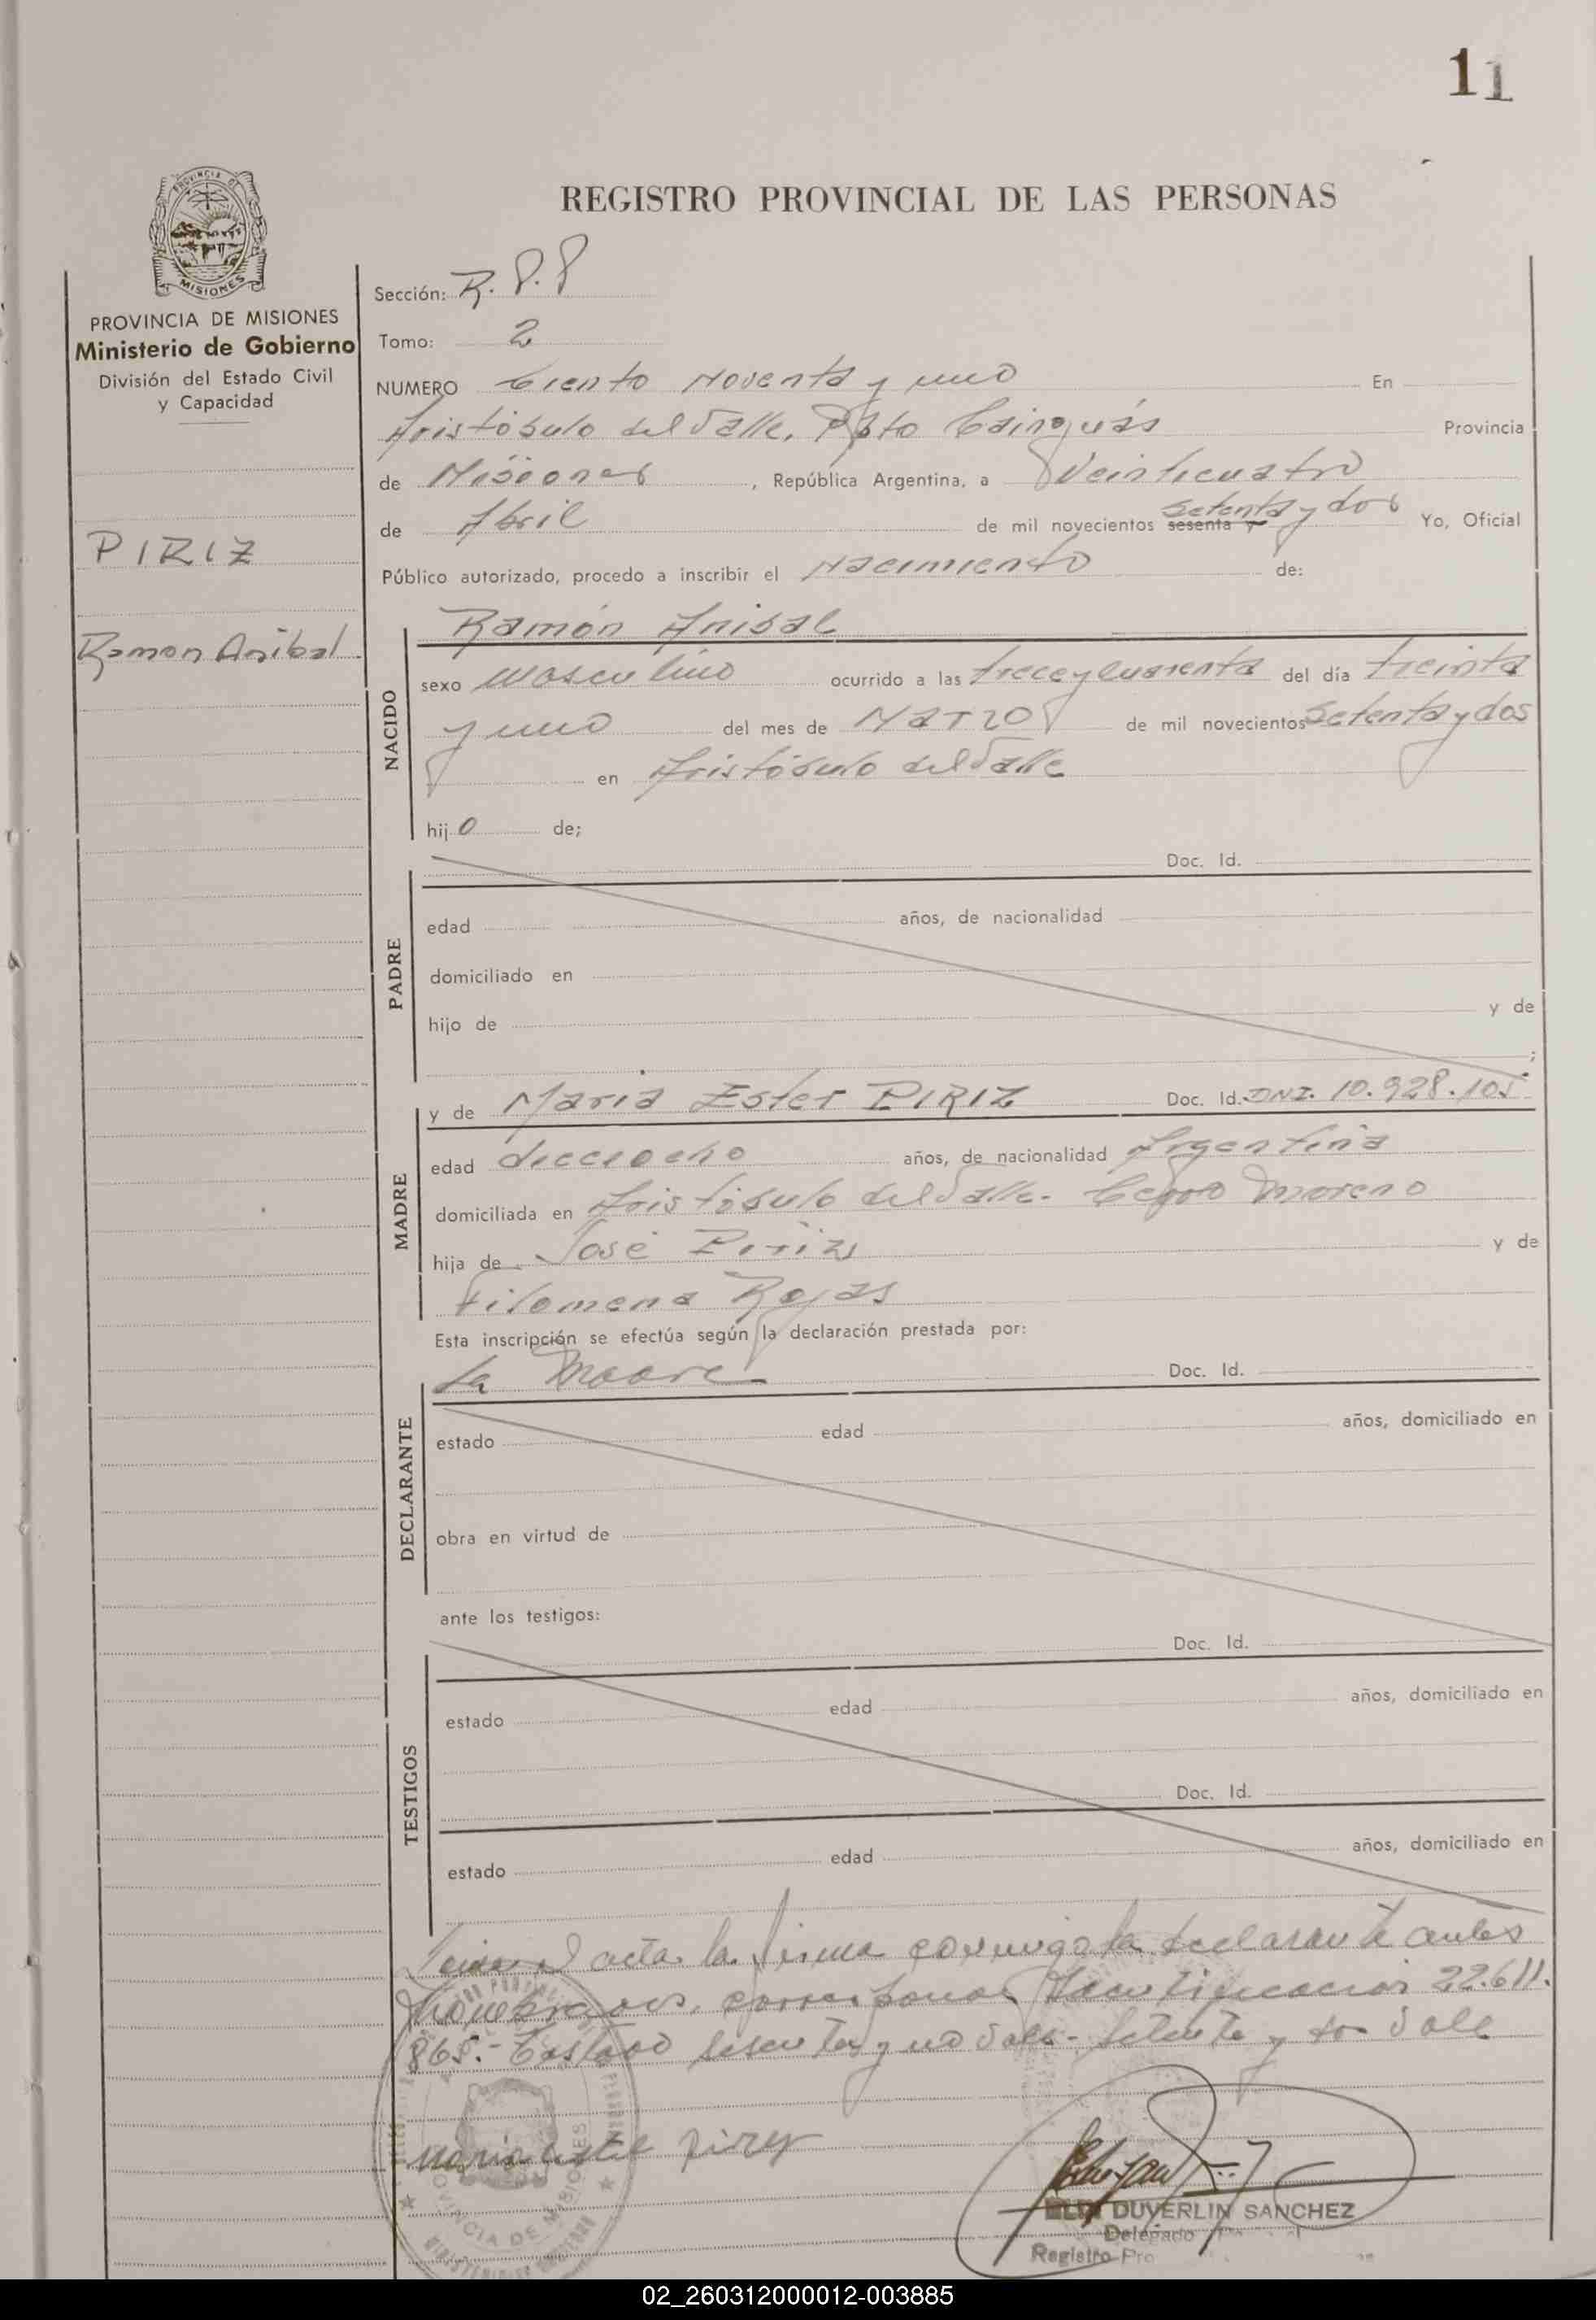 11
PROVINCIA DE MISIONES
REGISTRO PROVINCIAL DE LAS PERSONAS
PROVINCIA DE MISIONES
Ministerio de Gobierno
División del Estado Civil
y Capacidad
PIRIZ
Ramon Anibal
Sección: R.P.P
Tomo: 2
NUMERO Ciento Noventa y uno En
Aristóbulo del Valle, Dpto Cainguás Provincia
de Misiones, República Argentina, a Veinticuatro
de Abril de mil novecientos sesenta y setenta y dos Yo, Oficial
Público autorizado, procedo a inscribir el Nacimiento de:
NACIDO
Ramón Anibal
sexo Masculino ocurrido a las trece y cuarenta del día treinta
y uno del mes de Marzo de mil novecientos Setenta y dos
en Aristóbulo del Valle
hijo de;
PADRE
Doc. Id.
edad años, de nacionalidad
domiciliado en
hijo de y de
;
MADRE
y de Maria Ester PIRIZ Doc. Id. DNI. 10.928.105
edad dieciocho años, de nacionalidad Argentina
domiciliada en Aristóbulo del Valle - Cerro Moreno
hija de José Piriz y de
Filomena Rojas
Esta inscripción se efectúa según la declaración prestada por:
DECLARANTE
La Madre Doc. Id.
estado edad años, domiciliado en
obra en virtud de
ante los testigos:
TESTIGOS
Doc. Id.
estado edad años, domiciliado en
Doc. Id.
estado edad años, domiciliado en
acta la firma conmigo la declarante antes
22.611.
865.- Testado sesenta y no vale - Setenta y dos vale
Maria ester piriz
DUVERLIN SANCHEZ
Delegado
Registro Pro
02_260312000012-003885